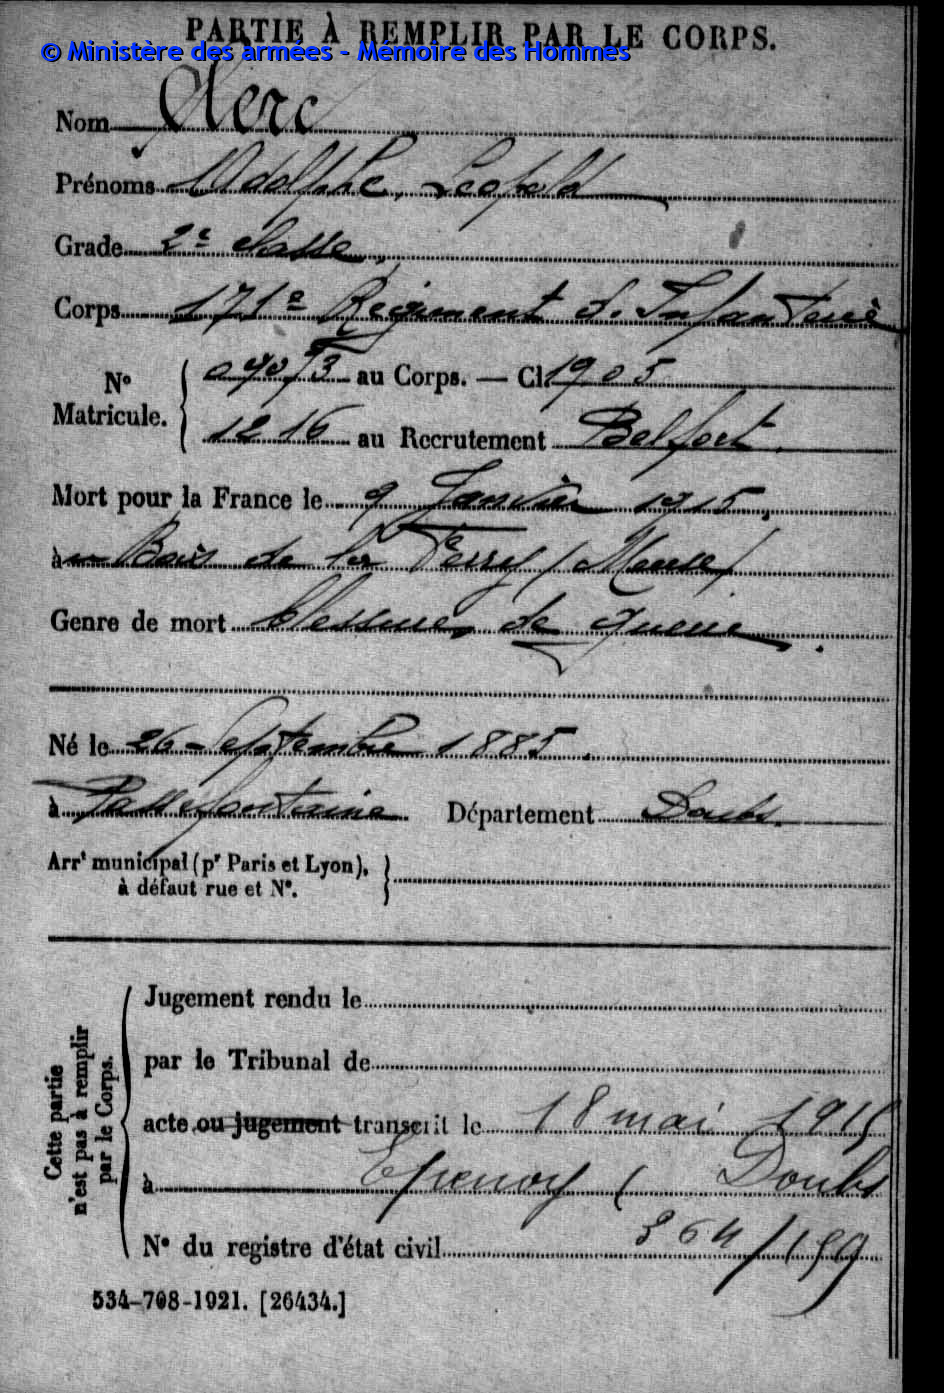 PARTIE À REMPLIR PAR LE CORPS.
© Ministère des armées - Mémoire des Hommes
Nom Clerc
Prénoms Adolphe, Léopold
Grade 2e classe,
Corps 171e Régiment d'Infanterie
No Matricule. { 09073 au Corps. — Cl 1905
1216 au Recrutement Belfort.
Mort pour la France le 9 Janvier 1915,
à Bois de la (Meuse)
Genre de mort blessures de guerre.
Né le 26 Septembre 1885.
à Passefontaine. Département Doubs.
Arrt municipal (pr Paris et Lyon), }
à défaut rue et No.
Cette partie n'est pas à remplir par le Corps.
Jugement rendu le
par le Tribunal de
acte ou jugement transcrit le 18 mai 1915
à Epenoy ( Doubs
No du registre d'état civil 364/159
534-708-1921. [26434.]